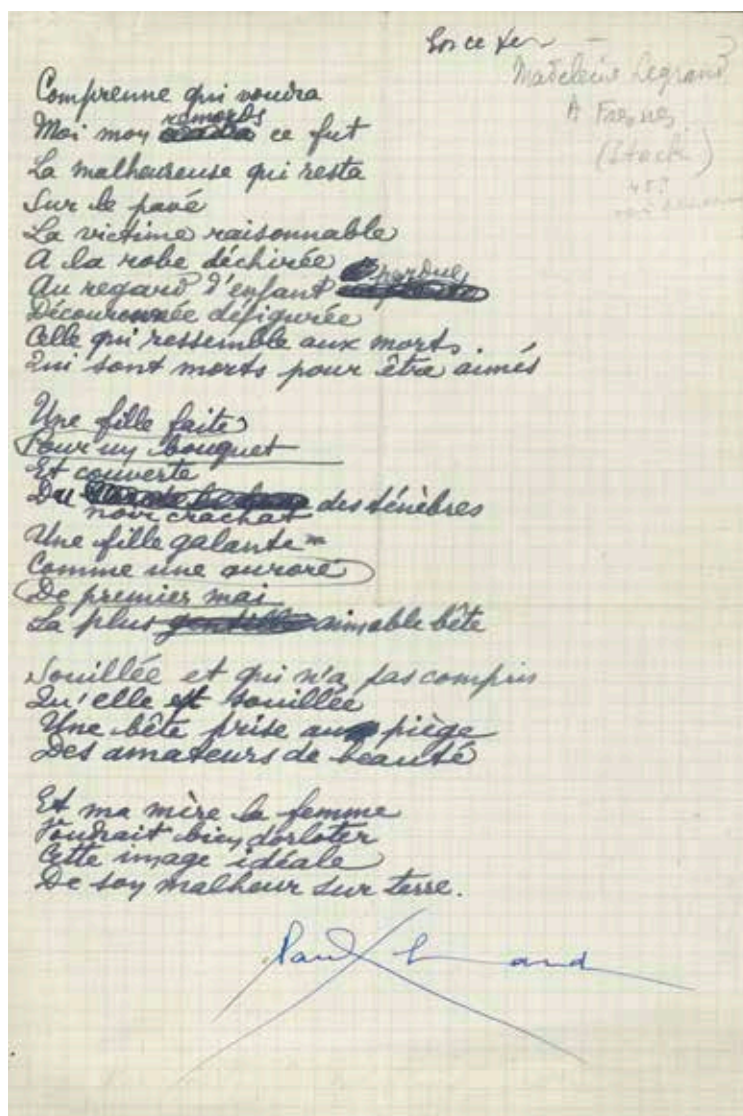 Madeleine Legrand
A Fresnes
(Stock)
Comprenne qui voudra
remords
Moi mon ce fut
La malheureuse qui resta
Sur le pavé
La victime raisonnable
A la robe déchirée
perdue
Au regard d'enfant
Découronnée défigurée
Celle qui ressemble aux morts
Qui sont morts pour être aimés
Une fille faite
Pour un bouquet
Et couverte
Du des ténèbres
noir crachat
Une fille galante
Comme une aurore
De premier mai
La plus aimable bête
Souillée et qui n'a pas compris
Qu'elle est souillée
Une bête prise au piège
Des amateurs de beauté
Et ma mère la femme
Voudrait bien dorloter
Cette image idéale
De son malheur sur terre.
Paul Eluard